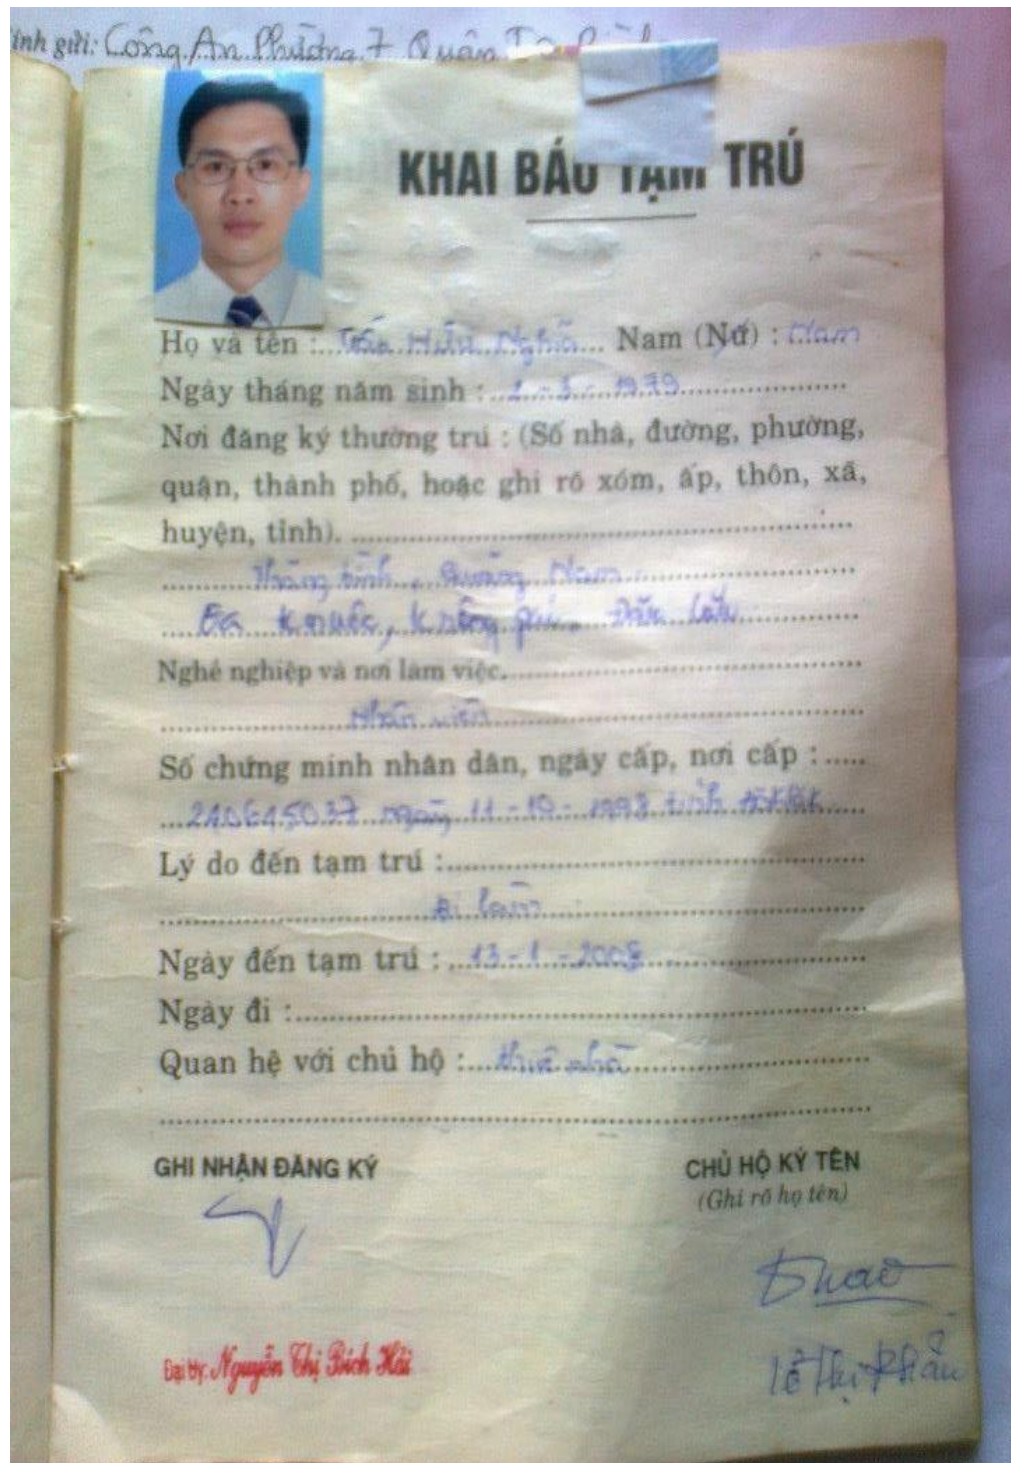 ính gửi: Công An Phường 7 Quận
KHAI BÁO TẠM TRÚ
Họ và tên : Hữu Nghĩa Nam (Nữ) : Nam
Ngày tháng năm sinh : 1979
Nơi đăng ký thường trú : (Số nhà, đường, phường,
quận, thành phố, hoặc ghi rõ xóm, ấp, thôn, xã,
huyện, tỉnh).
Thăng Bình, Quảng Nam
Ea Knuêc, Krông Păc, Đăk Lăk
Nghề nghiệp và nơi làm việc.
Nhân viên
Số chứng minh nhân dân, ngày cấp, nơi cấp :
240645037 ngày 11-10-1998 tỉnh
Lý do đến tạm trú :
Đi làm
Ngày đến tạm trú : 13-1-2008
Ngày đi :
Quan hệ với chủ hộ : thuê nhà
GHI NHẬN ĐĂNG KÝ
CHỦ HỘ KÝ TÊN
(Ghi rõ họ tên)
Đại úy: Nguyễn Thị Bích Hải
Lê Thị